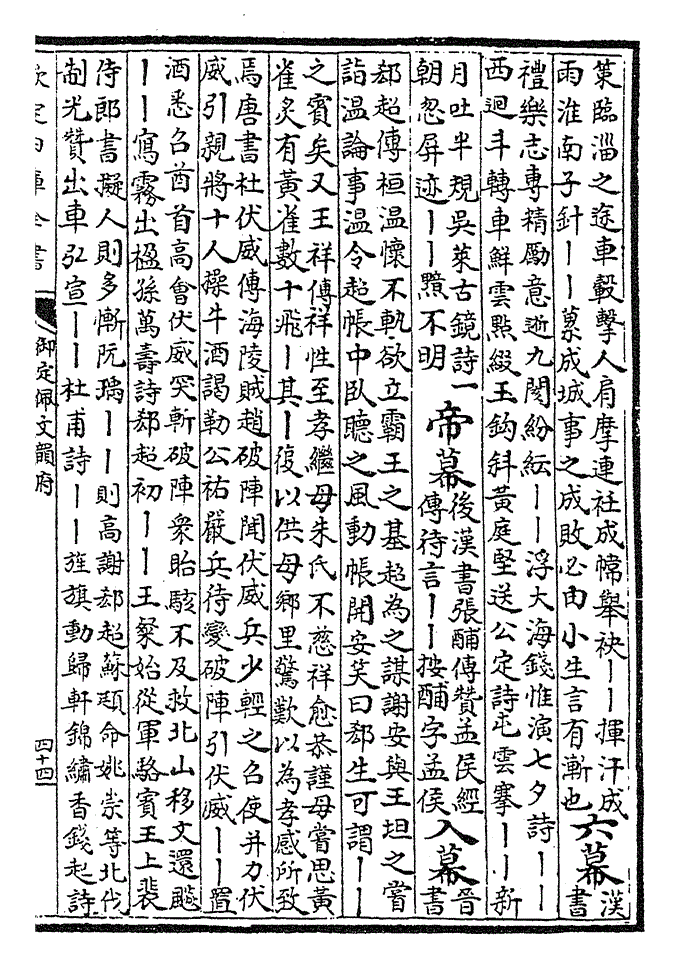 策臨淄之途車轂擊人肩摩連衽成幃舉袂丨丨揮汗成
雨淮南子針丨丨冪成城事之成敗必由小生言有漸也
六幕
漢書
禮樂志專精勵意逝九閡紛紜丨丨浮大海錢惟演七夕詩丨丨
西迴斗轉車鮮雲點綴玉鈎斜黃庭堅送公定詩屯雲搴丨丨新
月吐半規吳萊古鏡詩一
朝忽屏迹丨丨黯不明
帝幕
後漢書張酺傳贊孟侯經
傳待言丨丨按酺字孟侯
入幕
晉書
郄超傳桓溫懷不軌欲立霸王之基超為之謀謝安與王坦之嘗
詣溫論事溫令超帳中臥聽之風動帳開安笑曰郄生可謂丨丨
之賓矣又王祥傳祥性至孝繼母朱氏不慈祥愈恭謹母嘗思黃
雀炙有黃雀數十飛丨其丨復以供母鄉里驚歎以為孝感所致
焉唐書杜伏威傳海陵賊趙破陣聞伏威兵少輕之召使并力伏
威引親將十人操牛酒謁勒公祏嚴兵待變破陣引伏威丨丨置
酒悉召酋首高會伏威突斬破陣衆眙駭不及救北山移文還飈
丨丨寫霧出楹孫萬壽詩郄超初丨丨王粲始從軍駱賓王上裴
侍郎書擬人則多慚阮瑀丨丨則高謝郄超蘇頲命姚崇等北伐
制光贊出車弘宣丨丨杜甫詩丨丨旌旗動歸軒錦繡香錢起詩
欽定四庫全書
御定佩文韻府
四十四